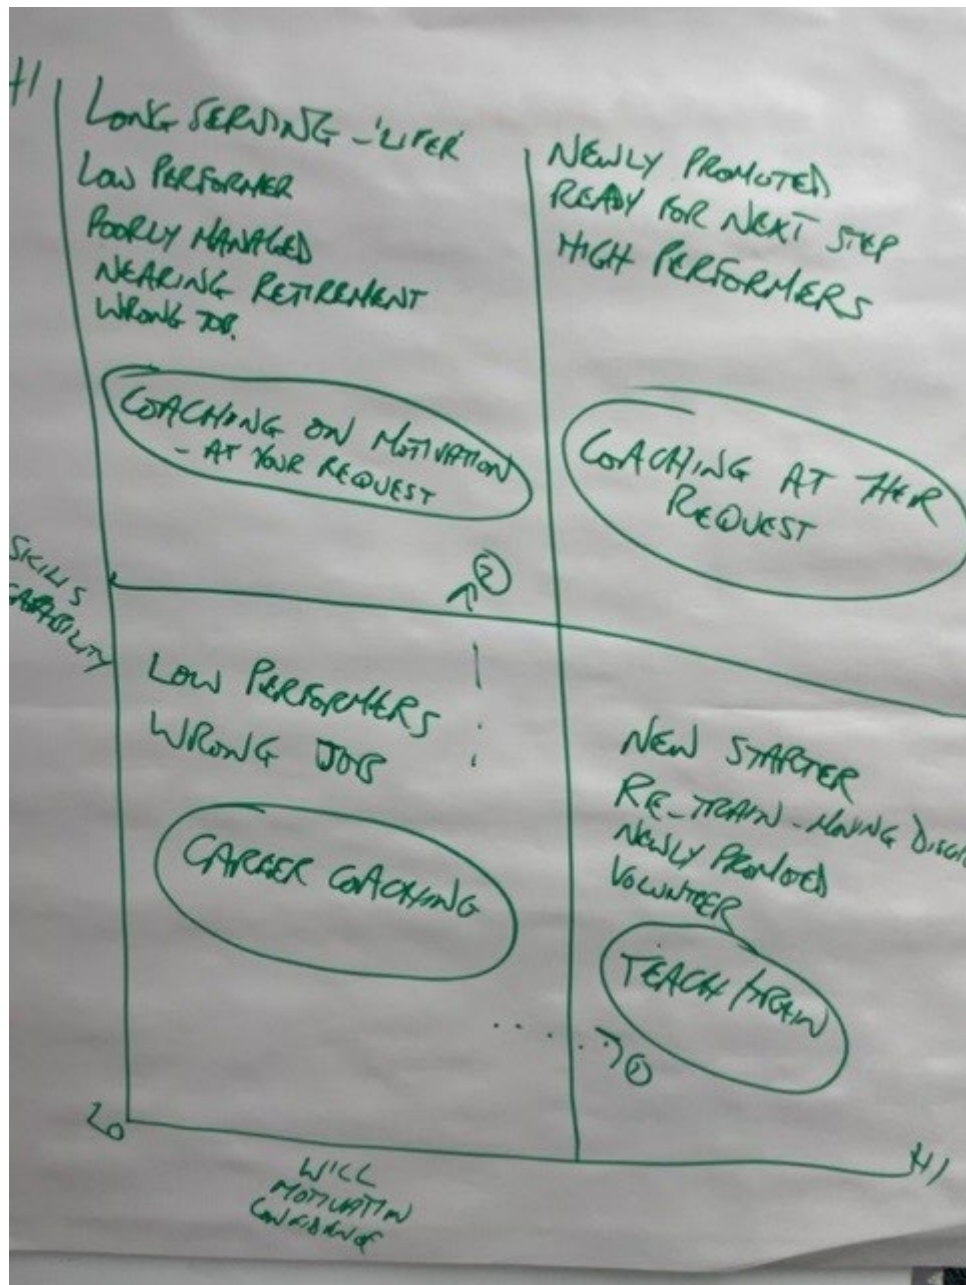 HI
LONG SERVING - 'LIFER'
LOW PERFORMER
POORLY MANAGED
NEARING RETIREMENT
WRONG JOB.
COACHING ON MOTIVATION
- AT YOUR REQUEST
NEWLY PROMOTED
READY FOR NEXT STEP
HIGH PERFORMERS
COACHING AT THEIR
REQUEST
SKILLS
CAPABILITY
2
LOW PERFORMERS
WRONG JOB
CAREER COACHING
NEW STARTER
RE-TRAIN - MOVING
NEWLY PROMOTED
VOLUNTEER
TEACH/TRAIN
LO
HI
WILL
MOTIVATION
CONFIDENCE